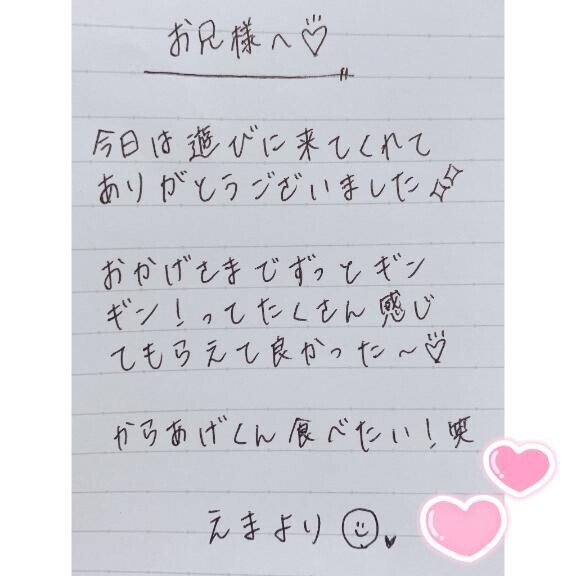 お兄様へ♡
今日は遊びに来てくれて
ありがとうございました✨
おかげさまでずっとギン
ギン！ってたくさん感じ
てもらえて良かった〜♡
からあげくん食べたい！笑
えまより☺♥